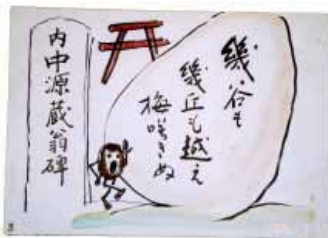 幾谷も
幾丘も越え
梅咲きぬ
内中源蔵翁碑